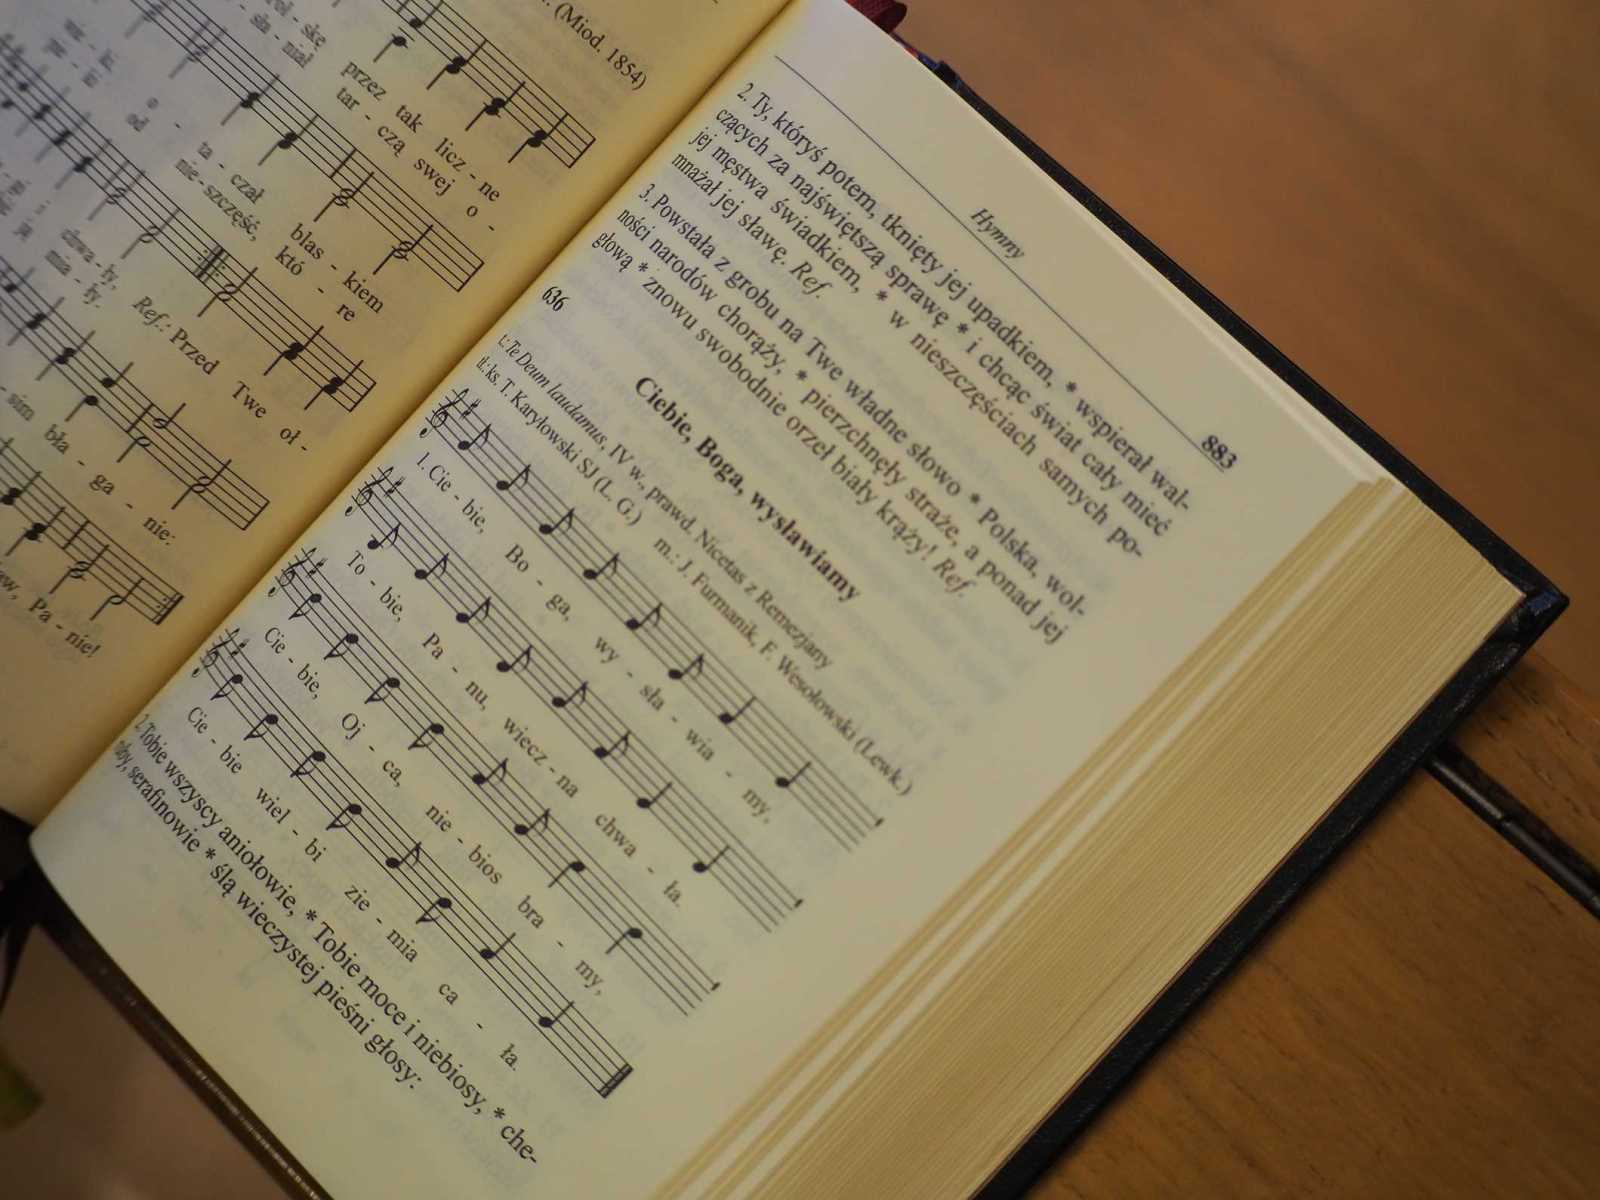 (Miod. 1854)
przez tak licz - ne
tar - czą swej o -
ta - czał blas - kiem
nie - szczęść, któ - re
chwa - ły, Ref.: Przed Twe oł -
bła - ga - nie:
Pa - nie!
Hymny 883
2. Ty, któryś potem, tknięty jej upadkiem, * wspierał wal-
czących za najświętszą sprawę * i chcąc świat cały mieć
jej męstwa świadkiem, * w nieszczęściach samych po-
mnażał jej sławę. Ref.
3. Powstała z grobu na Twe władne słowo * Polska, wol-
ności narodów chorąży, * pierzchnęły straże, a ponad jej
głową * znowu swobodnie orzeł biały krąży! Ref.
636 Ciebie, Boga, wysławiamy
t.: Te Deum laudamus, IV w., prawd. Nicetas z Remezjany
tł: ks. T. Karyłowski SJ (L. G.) m.: J. Furmanik, F. Wesołowski (Lewk.)
1. Cie - bie, Bo - ga, wy - sła - wia - my,
To - bie, Pa - nu, wiecz - na chwa - ła.
Cie - bie, Oj - ca, nie - bios bra - my,
Cie - bie wiel - bi zie - mia ca - ła.
2. Tobie wszyscy aniołowie, * Tobie moce i niebiosy, * che-
ruby, serafinowie * ślą wieczystej pieśni głosy: